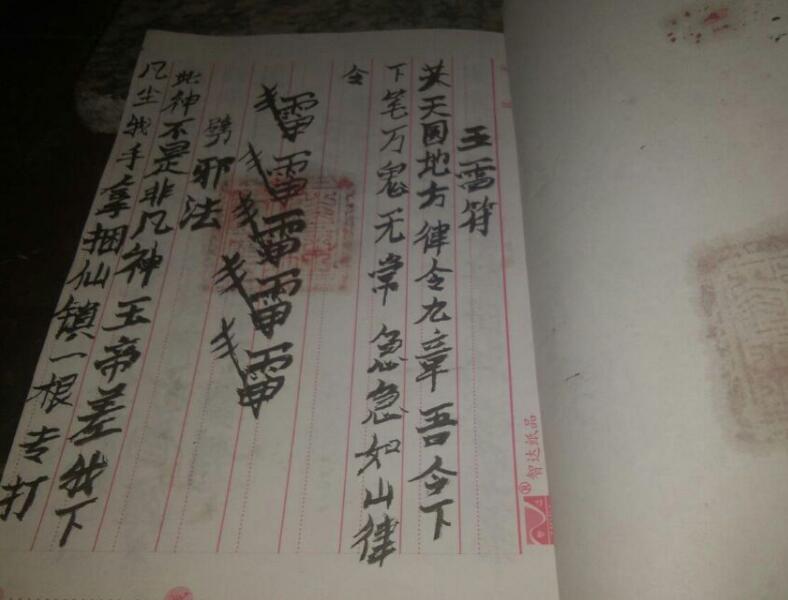 五雷符
夫天园地方律令九章吾今下
下笔万鬼无常急急如山律
令
雷雷雷雷雷
劈邪法
此神不是非凡神玉帝差我下
凡尘我手拿捆仙镇一根专打
智达纸品